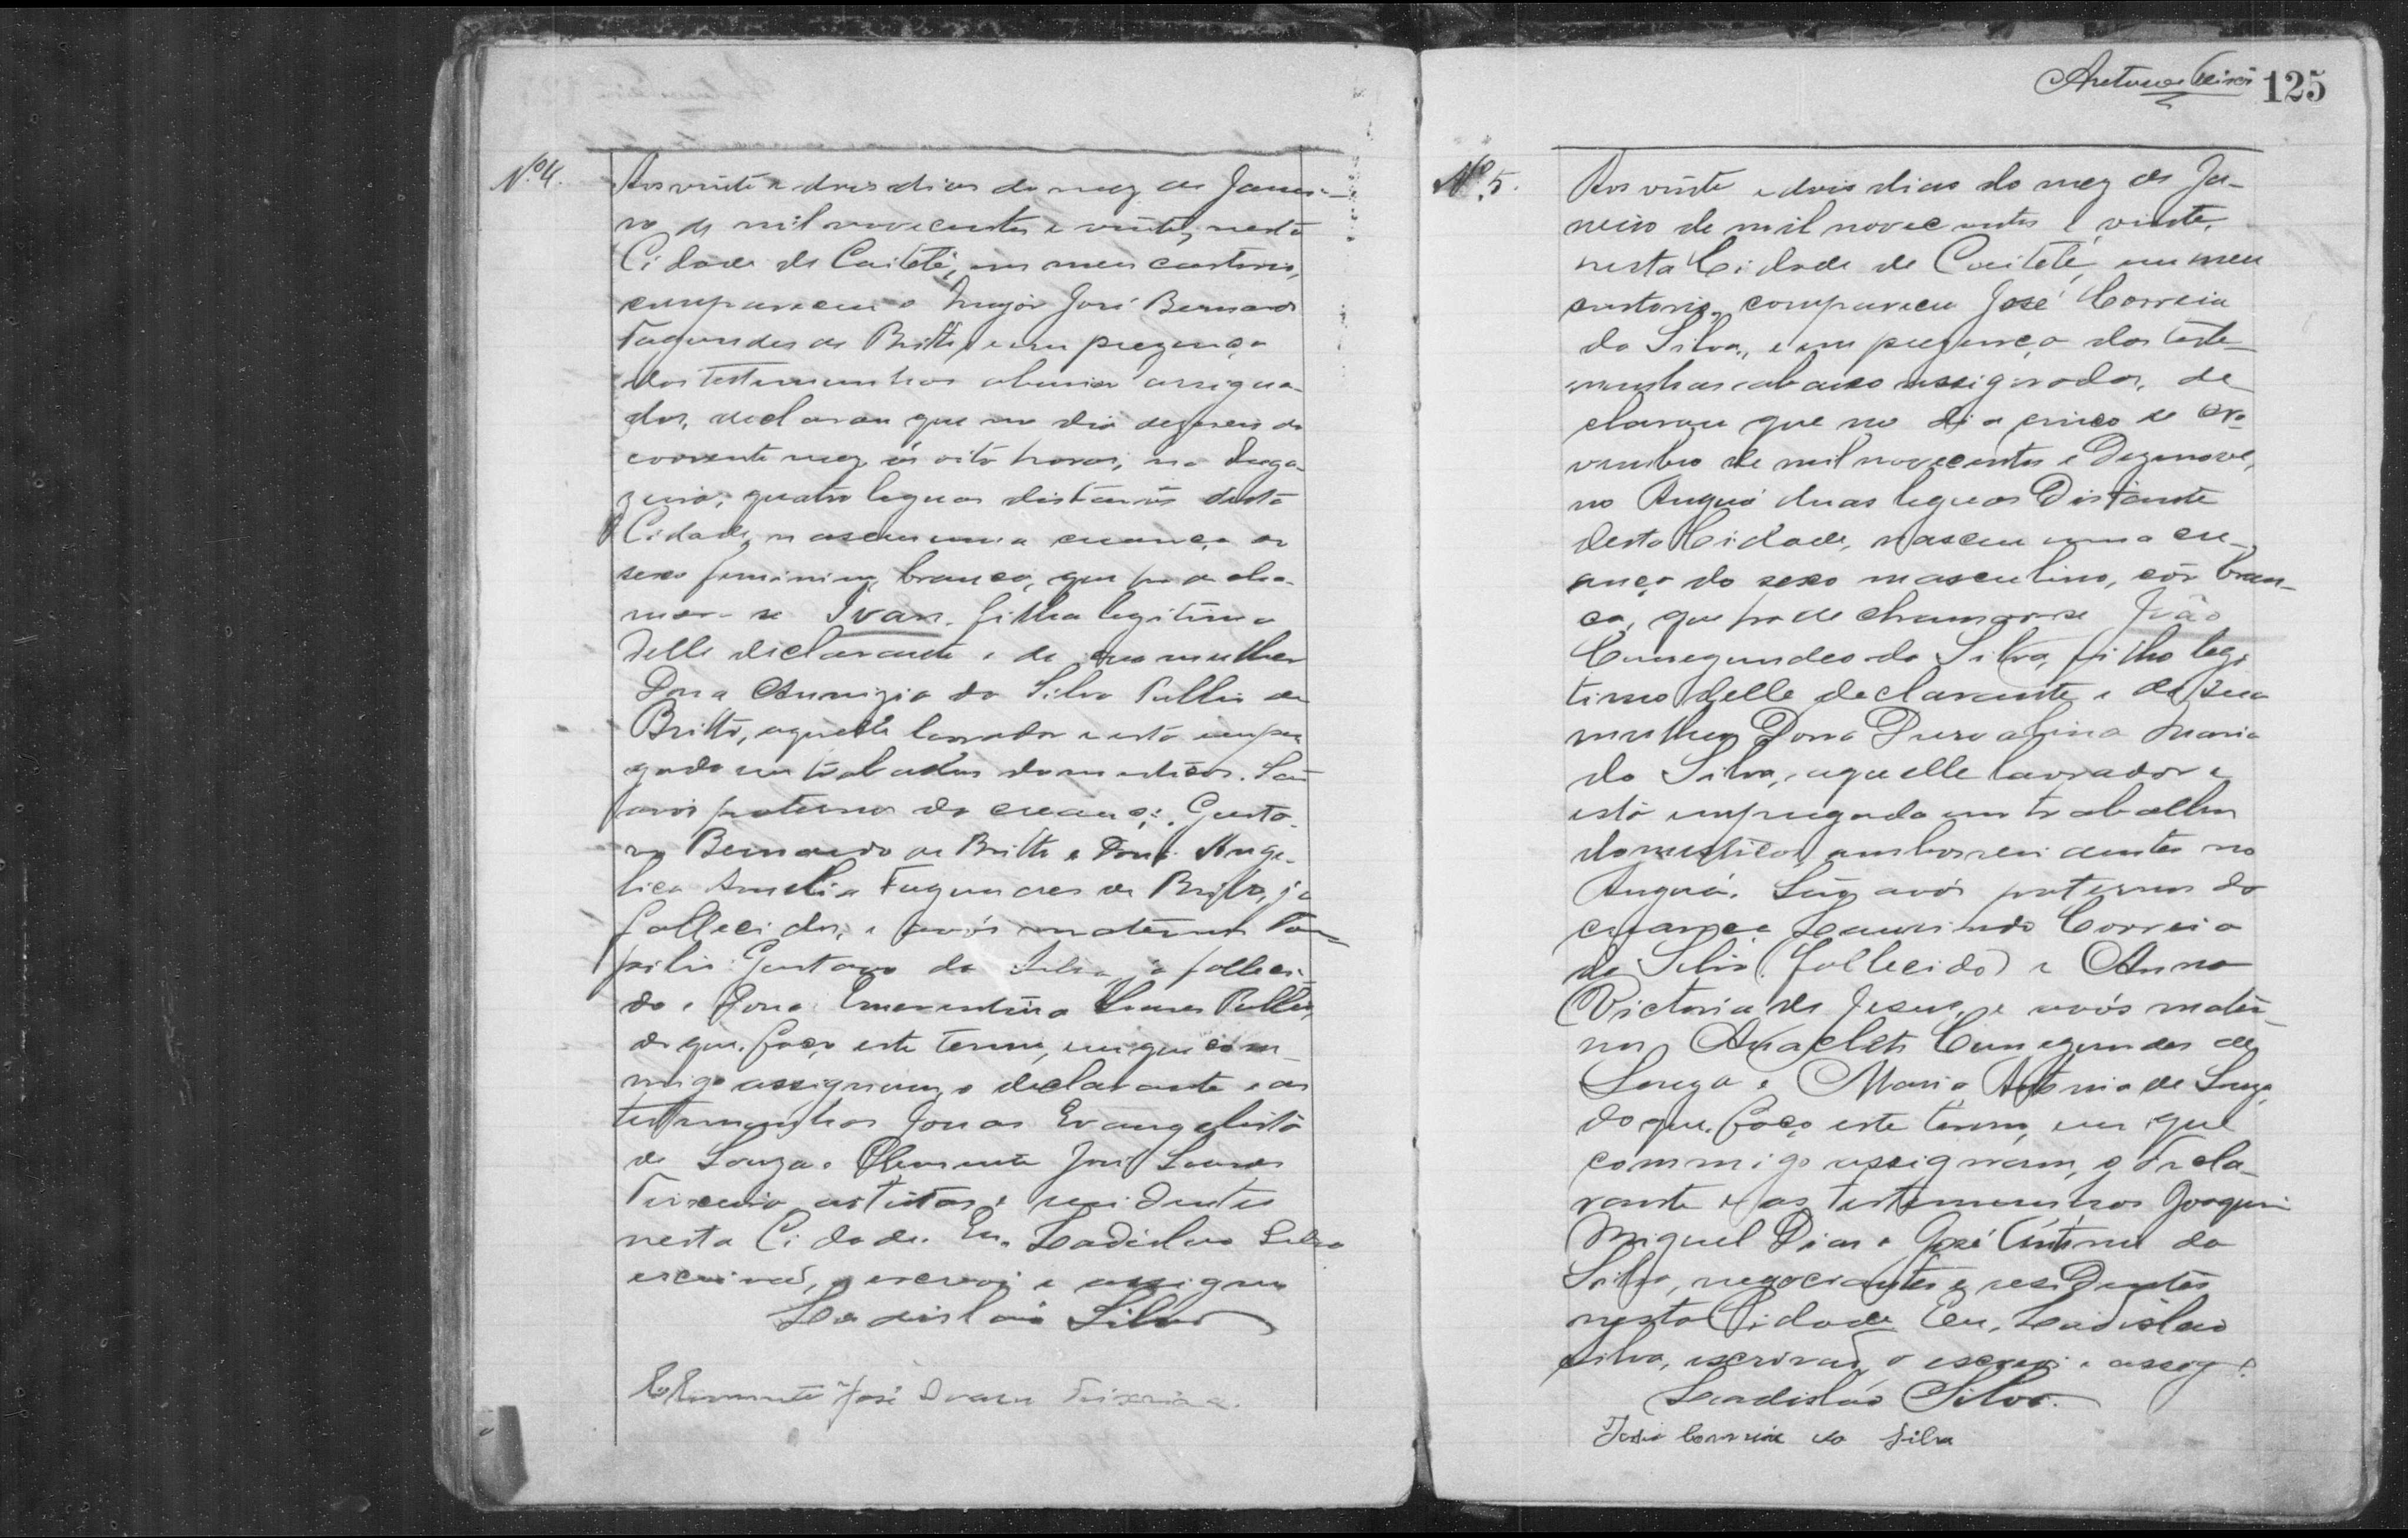 Antunes 125
Nº 4.
Aos vinte e dois dias do mez de Janei-
ro de mil novecentos e vinte, nesta
Cidade de Caiteté, em meu cartorio,
compareceu o Major José Bernardo
Fagundes de Britto, e em prezença
das testemunhas abaixo assigna-
das, declarou que no dia dezeseis do
corrente mez, ás oito horas, na
quatro leguas distante desta
Cidade, nasceu uma creança do
sexo feminino, branca, que ha de cha-
mar-se Ivan, filha legitima
delle declarante e de sua mulher
Dona da Silva Publio de
Britto, aquelle lavrador e esta empre
gada em trabalhos domesticos. São
avós paternos da creança: Gusta-
vo Bernardo de Britto e Dona Ange-
lica Amelia Fagundes de Britto, já
fallecidos, e avós maternos Pom-
pilio Gustavo da Silva, já falleci
do e Dona Emerentina Soares Publio,
do que faço este termo, em que com-
migo assignam, o declarante e as
testemunhas Jonas Evangelista
de Souza e Clemente José Soares
Teixeira, artistas e residentes
nesta Cidade. Eu, Ladislao Silva
escrivão, o escrevi e assigno
Ladislao Silva
Clemente José Soares Teixeira.
Nº 5.
Aos vinte e dois dias do mez de Ja-
neiro de mil novecentos e vinte,
nesta Cidade de Caiteté, em meu
cartorio, compareceu José Correia
da Silva, e em prezença das teste-
munhas abaixo assignadas, de
clarou que no dia cinco de No-
vembro de mil novecentos e Dezenove,
no Anguá duas leguas Distante
desta Cidade, nasceu uma cre-
ança do sexo masculino, côr bran-
ca, que ha de chamar-se João
Cunegundes da Silva, filho legi
timo delle declarante e de sua
mulher Dona Durvalina Maria
da Silva, aquelle lavrador e
esta empregada em trabalhos
domesticos, ambos residentes no
Anguá. São avós paternos da
creança Laurindo Correia
da Silva (fallecido) e Anna
Victoria de Jesus, e avós mater-
nos Anacleto Cunegundes de
Souza e Maria Antonia de Souza,
do que faço este termo, em que
commigo assignam, o decla-
rante e as testemunhas Joaquim
Miguel Dias e José Antonio da
Silva, negociantes e residentes
nesta Cidade. Eu, Ladislao
Silva, escrivão, o escrevi e assigº.
Ladislao Silva.
José Correia da Silva